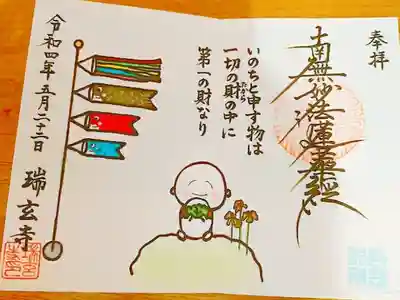 奉拝
南無妙法蓮華経
いのちと申す物は
一切の財の中に
たから
第一の財なり
令和四年 五月二十二日
瑞玄寺